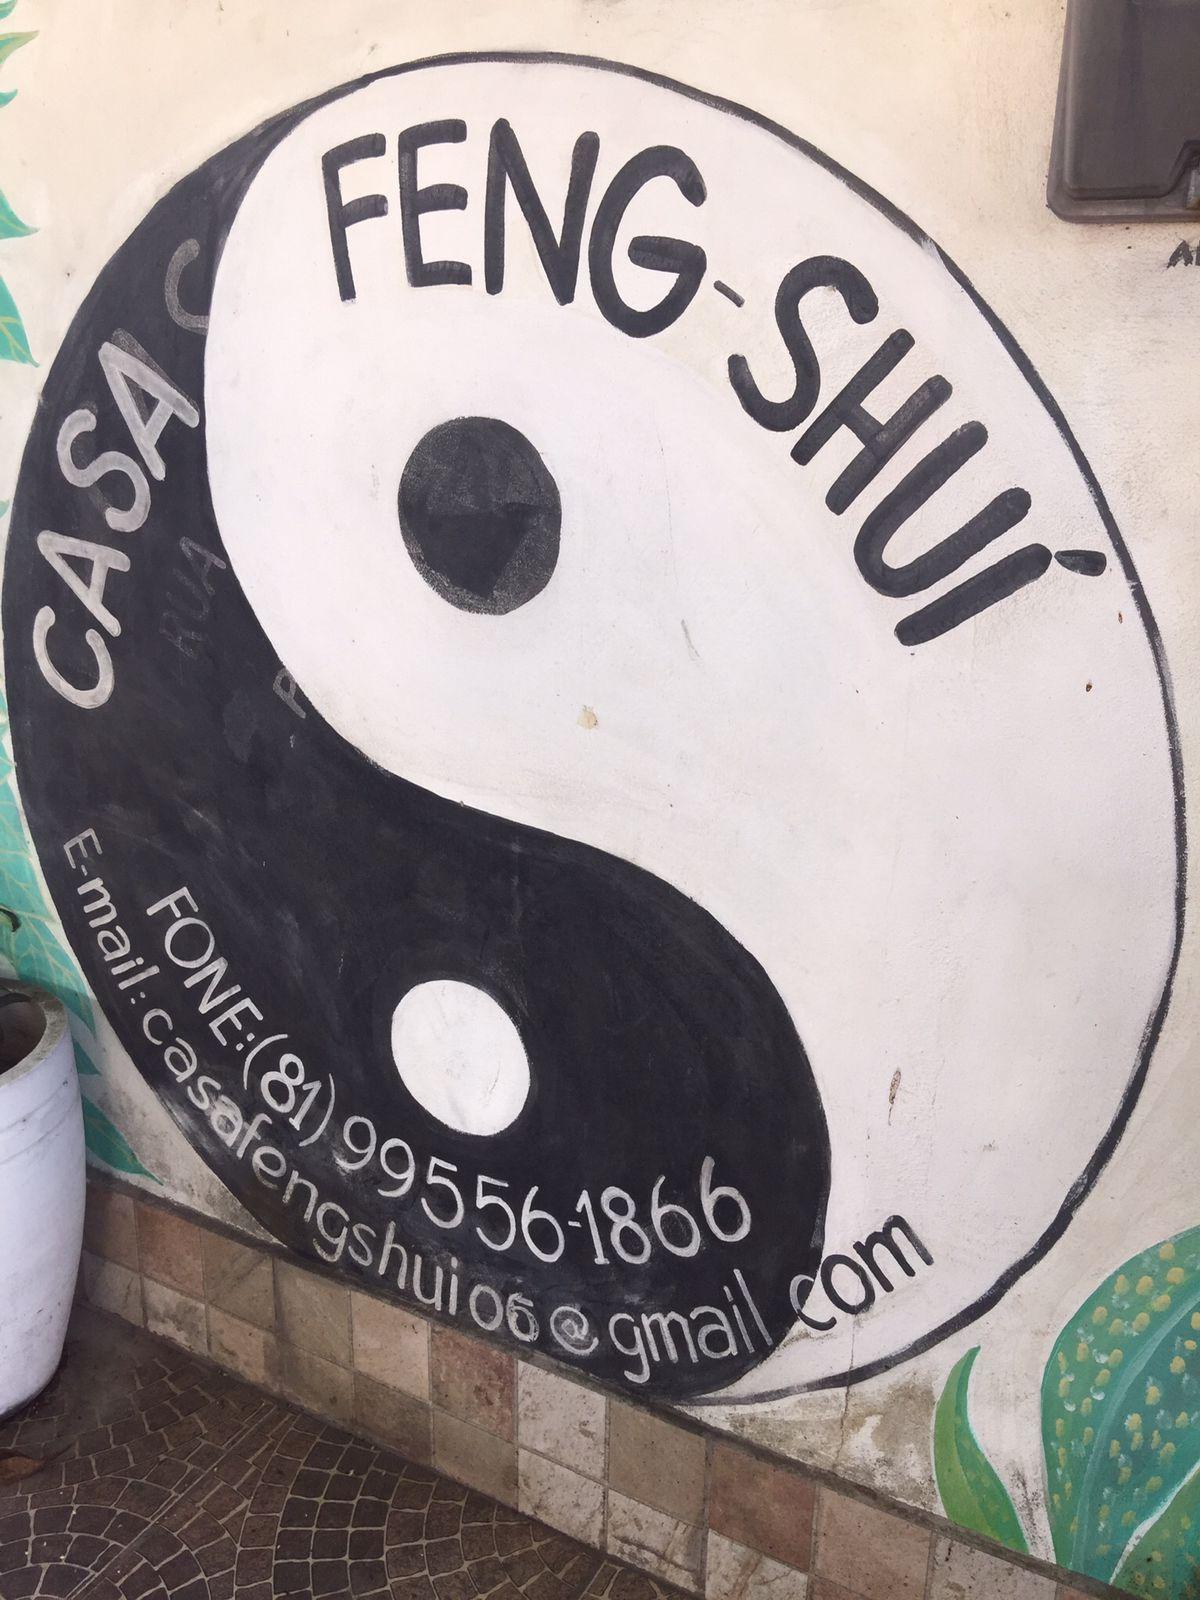 CASA
FENG-SHUÍ
RUA
FONE:(81) 99556-1866
E-mail:casafengshui06@gmail com